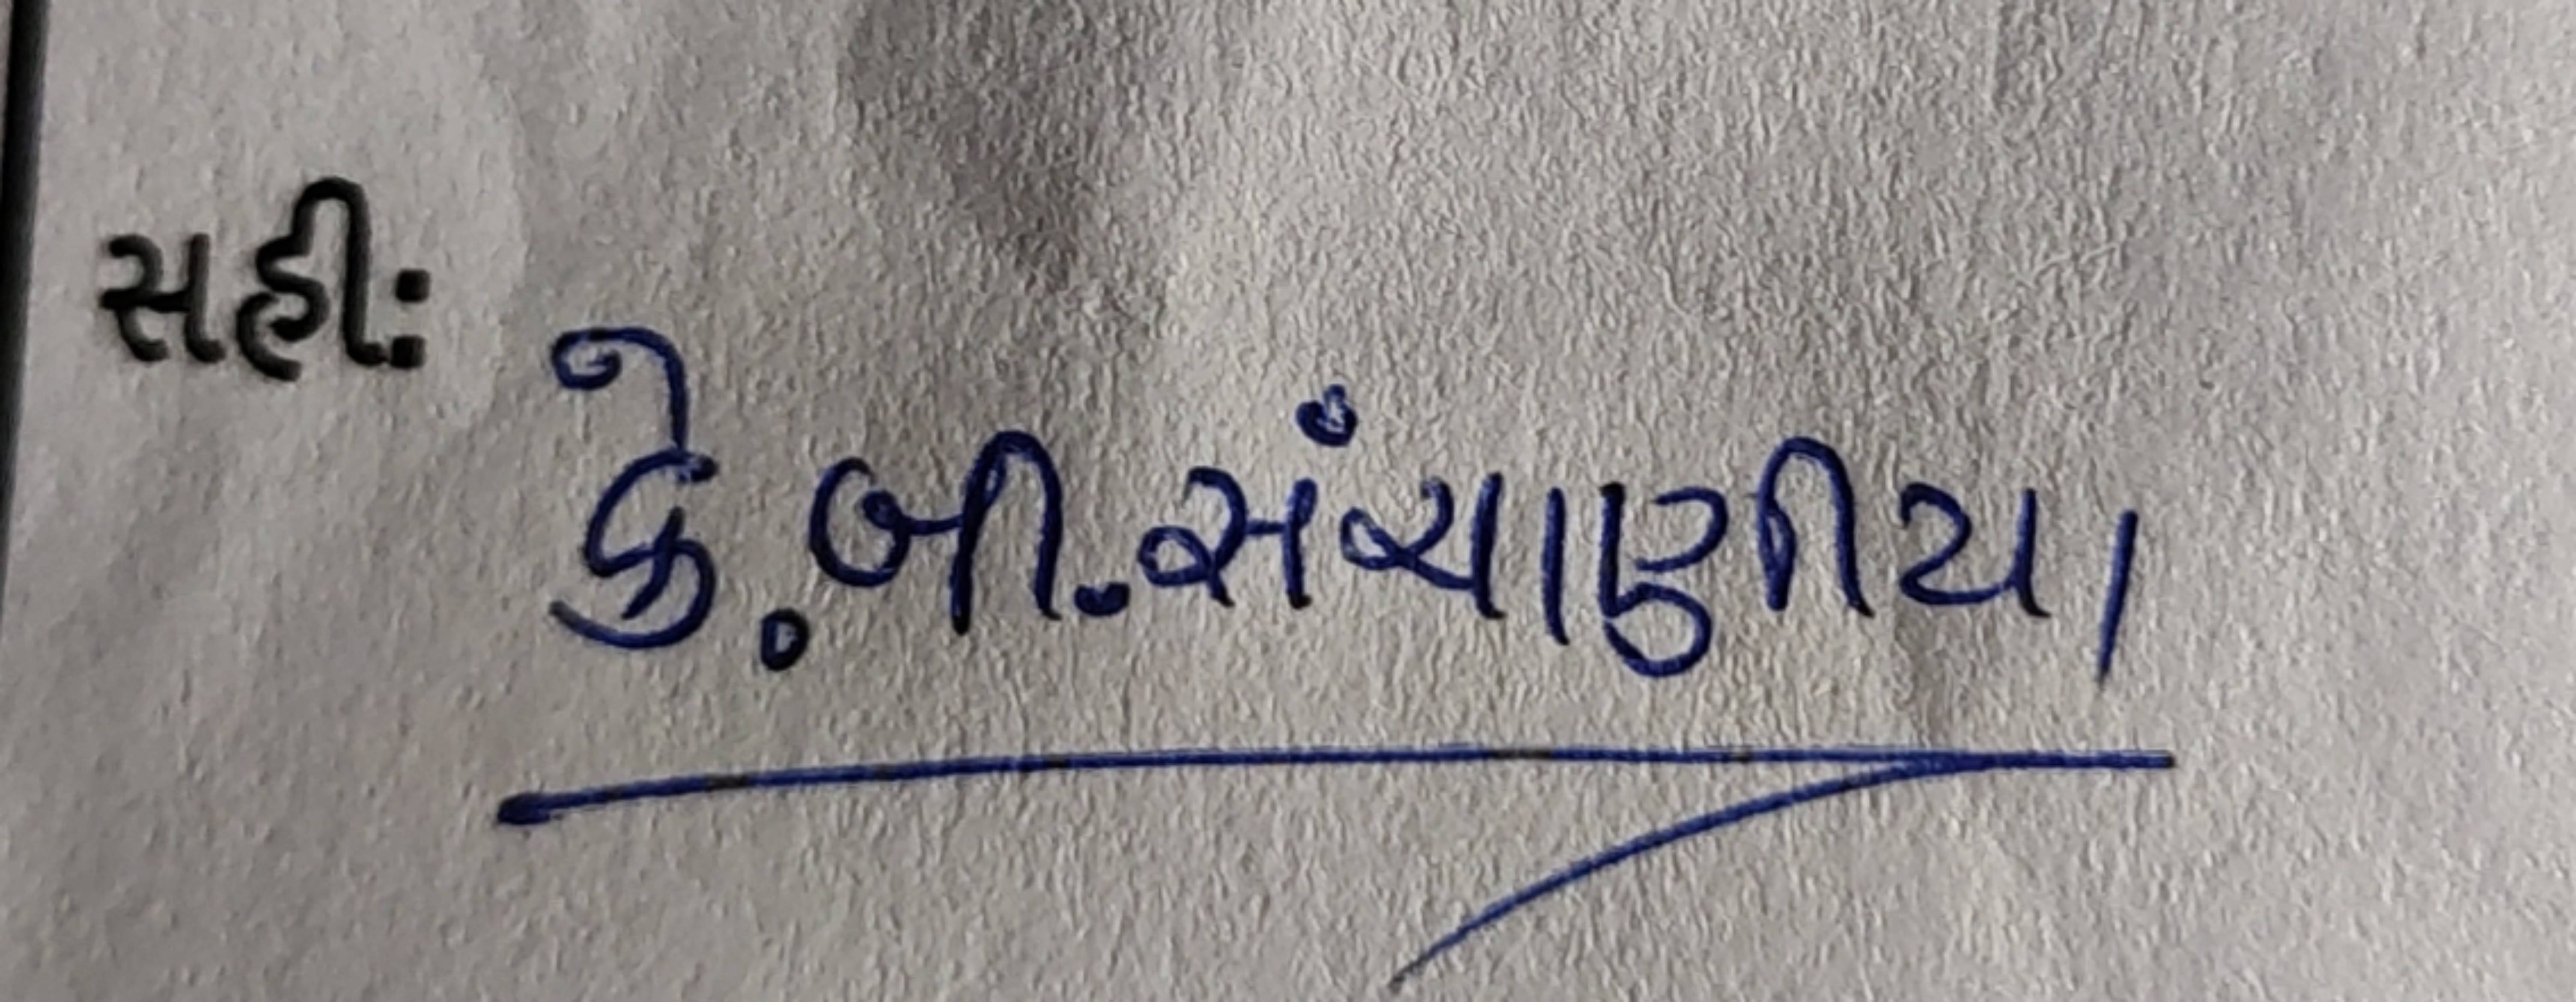 સહી:
કે.બી.સંચાણીયા